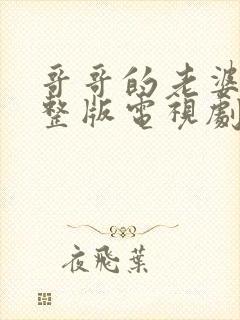 哥哥的老婆
整版電視劇
夜飛葉